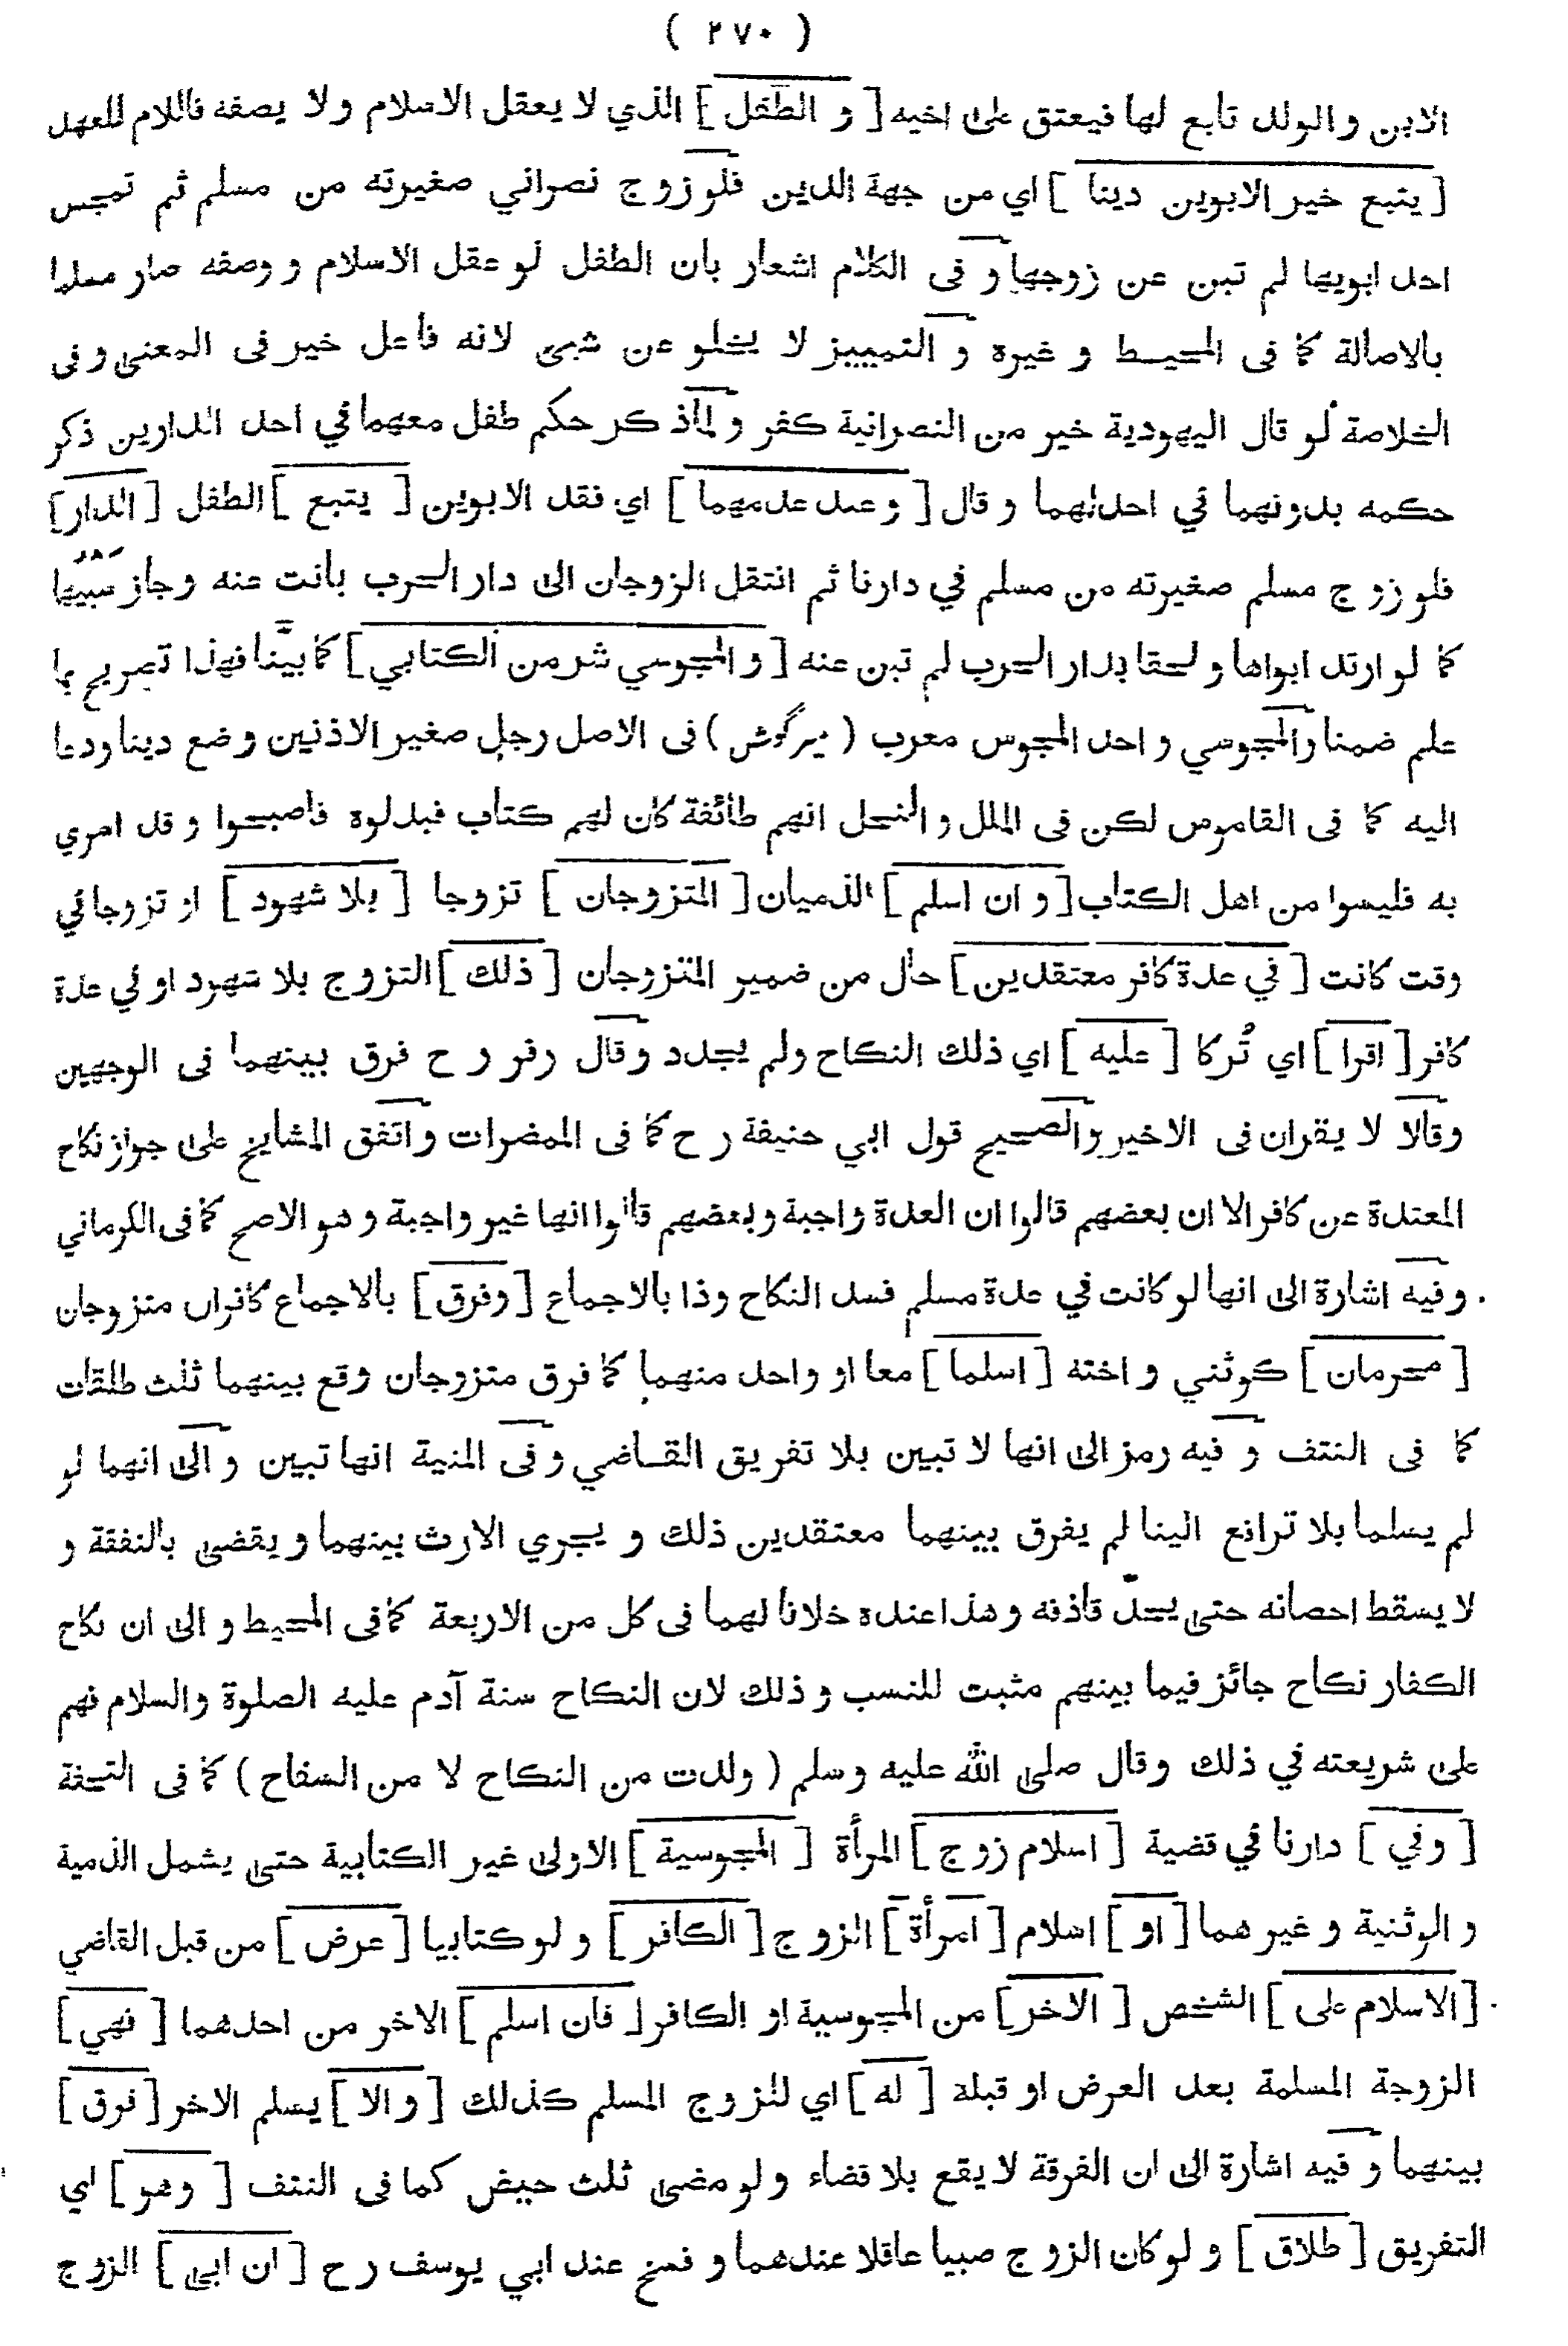 ( ٢٧٠ )
الابن والولد تابع لها فيعتق على اخيه [ و الطفل ] الذي لا يعقل الاسلام ولا يصفه فاللام للعهد
[ يتبع خير الابوين دينا ] اي من جهة الدين فلو زوج نصراني صغيرته من مسلم ثم تمجس
احد ابويها لم تبن عن زوجها و فى الكلام اشعار بان الطفل لو عقل الاسلام و وصفه صار مسلما
بالاصالة كما فى المحيط و غيره و التمييز لا يخلو عن شئ لانه فاعل خير فى المعنى و فى
الخلاصة لو قال اليهودية خير من النصرانية كفر و لما ذكر حكم طفل معهما في احد الدارين ذكر
حكمه بدونهما في احدٰهما و قال [ و عند عدمهما ] اي فقد الابوين [ يتبع ] الطفل [ الدار ]
فلو زوج مسلم صغيرته من مسلم في دارنا ثم انتقل الزوجان الى دار الحرب بانت عنه وجاز سَبْيُها
كما لو ارتد ابواها و لحقا بدار الحرب لم تبن عنه [ و المجوسي شر من الكتابي ] كما بيّنا فهذا تصريح بما
علم ضمنا والمجوسي واحد المجوس معرب ( ميرگوش ) فى الاصل رجل صغير الاذنين وضع دينا ودعا
اليه كما فى القاموس لكن فى الملل و النحل انهم طائفة كان لهم كتاب فبدلوه فاصبحوا و قد اسري
به فليسوا من اهل الكتاب [ و ان اسلم ] الذميان [ المتزوجان ] تزوجا [ بلا شهود ] او تزوجا في
وقت كانت [ في عدة كافر معتقدين ] حال من ضمير المتزوجان [ ذلك ] التزوج بلا شهود او في عدة
كافر [ اقرا ] اي تُركا [ عليه ] اي ذلك النكاح ولم يجدد وقال زفر رح فرق بينهما فى الوجهين
وقالا لا يقران فى الاخير والصحيح قول ابي حنيفة رح كما فى المضمرات واتفق المشايخ على جواز نكاح
المعتدة عن كافر الا ان بعضهم قالوا ان العدة واجبة وبعضهم قالوا انها غير واجبة وهو الاصح كما فى الكرماني
وفيه اشارة الى انها لو كانت في عدة مسلم فسد النكاح وذا بالاجماع [ وفرق ] بالاجماع كافران متزوجان
[ محرمان ] كوثني و اخته [ اسلما ] معا او واحد منهما كما فرق متزوجان وقع بينهما ثلث طلقات
كما فى النتف و فيه رمز الى انها لا تبين بلا تفريق القاضي و فى المنية انها تبين و الى انهما لو
لم يسلما بلا ترافع الينا لم يفرق بينهما معتقدين ذلك و يجري الارث بينهما و يقضى بالنفقة و
لا يسقط احصانه حتى يحدّ قاذفه وهذا عنده خلافا لهما فى كل من الاربعة كما فى المحيط و الى ان نكاح
الكفار نكاح جائز فيما بينهم مثبت للنسب و ذلك لان النكاح سنة آدم عليه الصلوة والسلام فهم
على شريعته في ذلك وقال صلى الله عليه وسلم ( ولدت من النكاح لا من السفاح ) كما فى التحفة
[ وفي ] دارنا في قضية [ اسلام زوج ] المرأة [ المجوسية ] الاولى غير الكتابية حتى يشمل الذمية
و الوثنية و غيرهما [ او ] اسلام [ امرأة ] الزوج [ الكافر ] و لو كتابيا [ عرض ] من قبل القاضي
[ الاسلام على ] الشخص [ الاخر ] من المجوسية او الكافر [ فان اسلم ] الاخر من احدهما [ فهي ]
الزوجة المسلمة بعد العرض او قبله [ له ] اي للزوج المسلم كذلك [ و الا ] يسلم الاخر [ فرق ]
بينهما و فيه اشارة الى ان الفرقة لا يقع بلا قضاء و لو مضى ثلث حيض كما فى النتف [ وهو ] اي
التفريق [ طلاق ] و لو كان الزوج صبيا عاقلا عندهما و فسخ عند ابي يوسف رح [ ان ابى ] الزوج